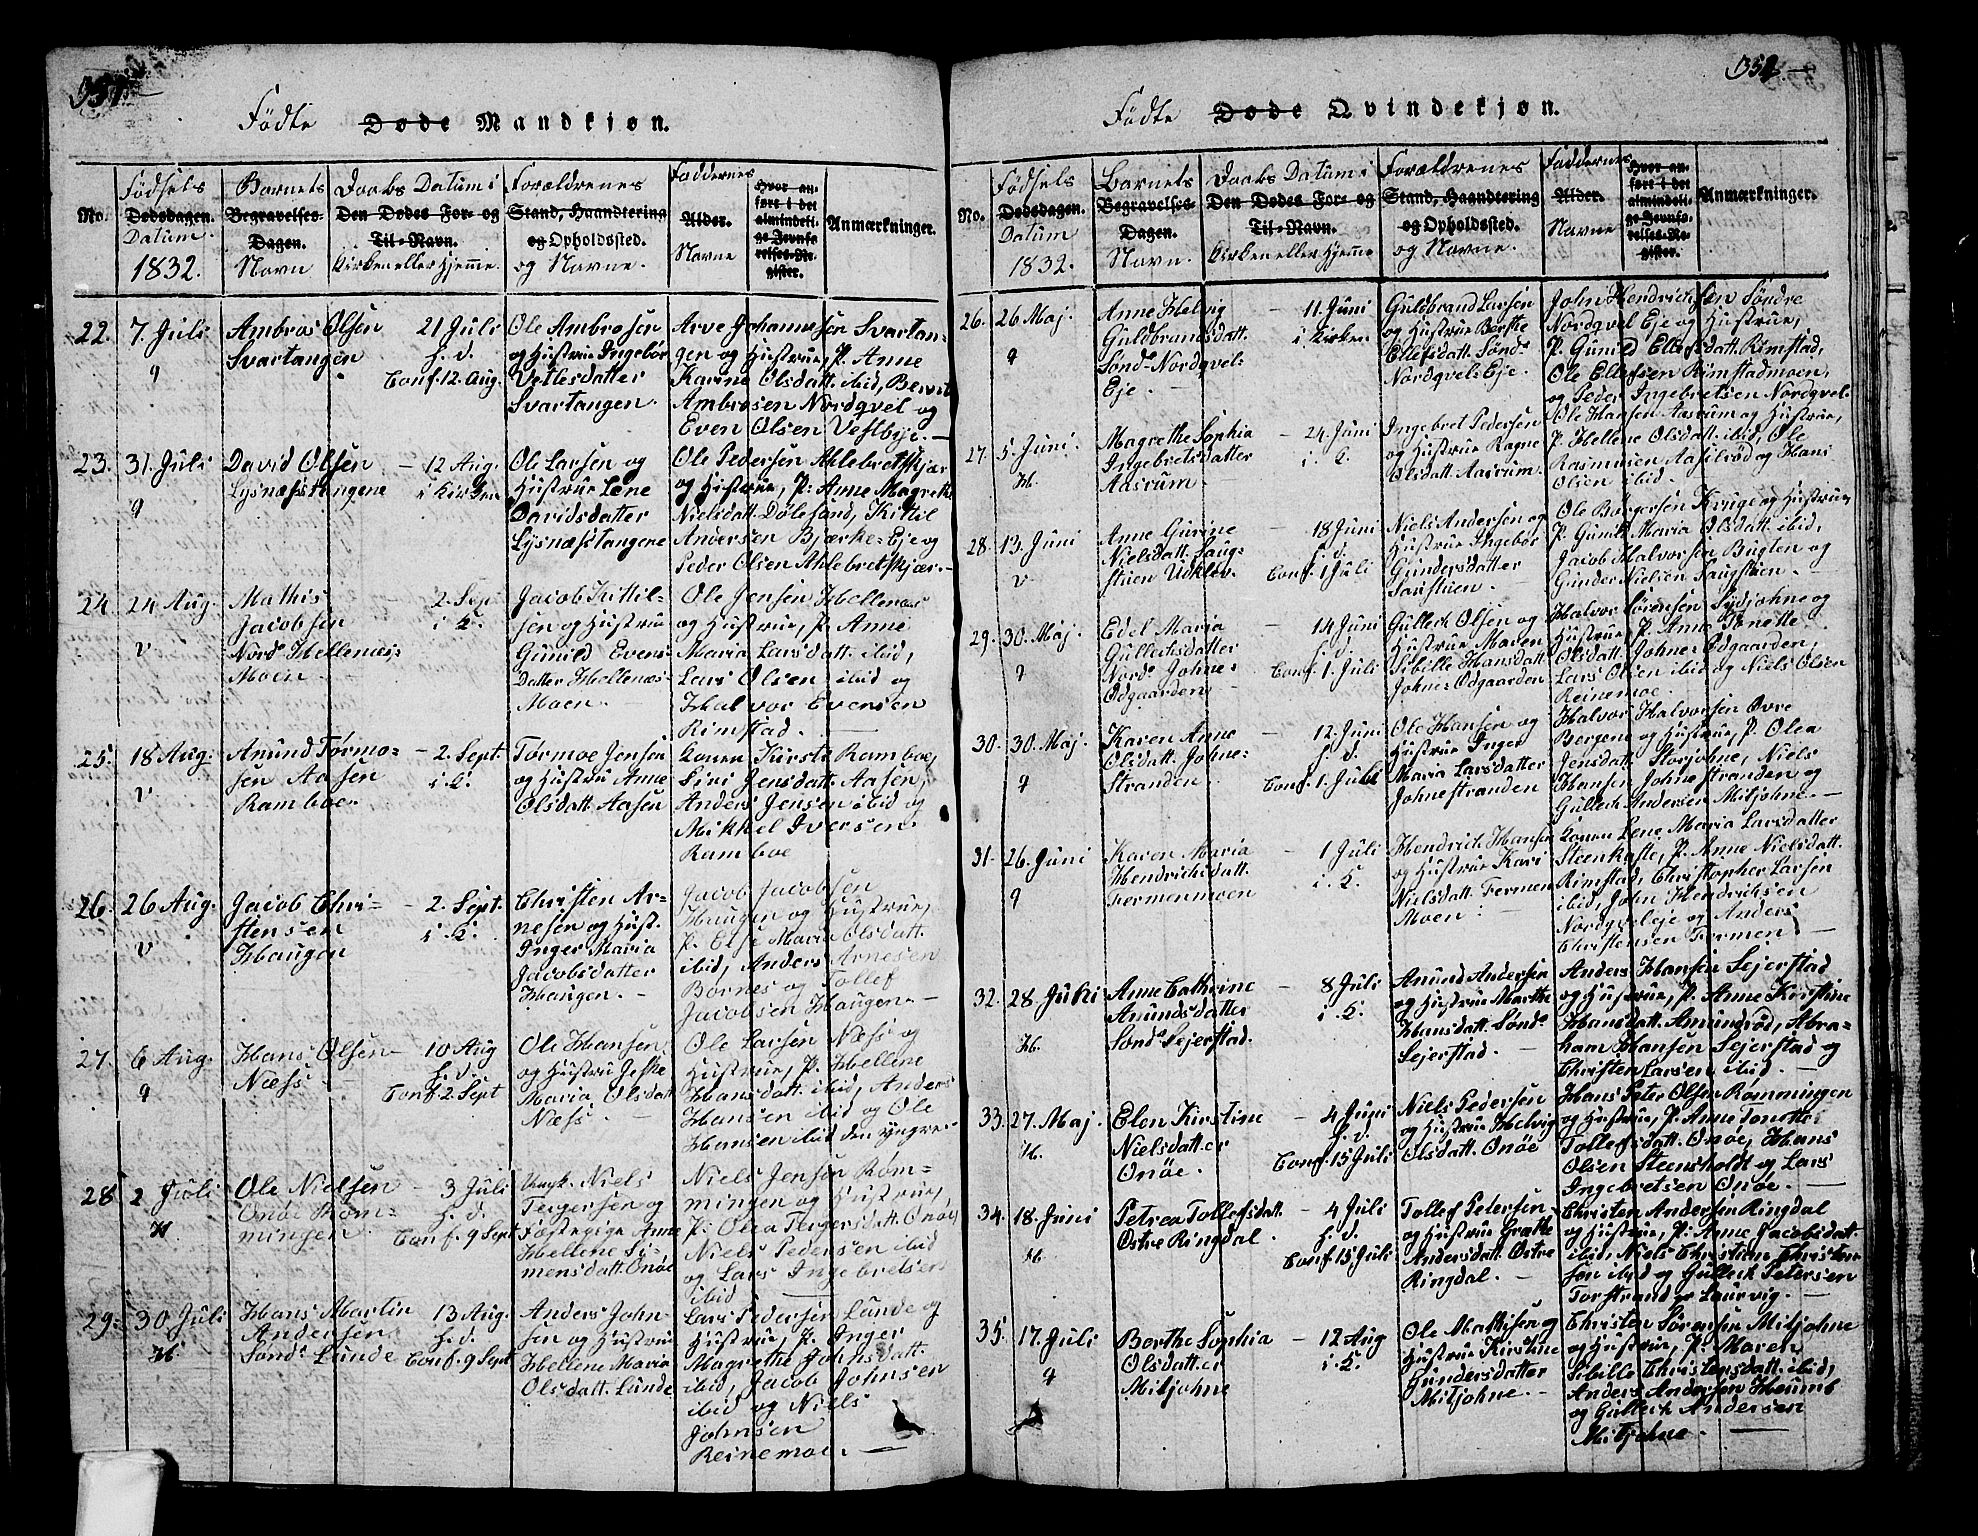 351.
Födte Døde Mandkjøn.
No.
Födsels
Dødsdagen.
Datum
1832.
Barnets
Begravelses-
Dagen.
Navn
Daabs Datum i
Den Dødes For- og
Til-Navn.
Kirken eller Hjemme.
Forældrenes
Stand, Haandtering
og Opholdssted.
og Navne.
Faddernes
Alder.
Navne
Hvor an-
ført i det
almindeli-
ge Jevnfø-
relses-Re-
gister.
Anmærkninger.
22.
7. Juli
q
Ambros Olsen
Svartangen
21 Juli
h. d.
Conf. 12. Aug.
Ole Ambrosen
og Hustrue Ingebör
Vetlesdatter
Svartangen.
Arve Johannesen Svartan-
gen og Hustrue, P. Anne
Karine Olsdatt. ibid, Bernt
Ambrosen Nordqvel og
Even Olsen Vestbye. —
23.
31. Juli
q
David Olsen
Lysnæsstangene
— 12 Aug.
i Kirken
Ole Larsen og
Hustrue Lene
Davidsdatter
Lysnæsstangene
Ole Pedersen Ahlebretskjær
og Hustrue, P: Anne Magrethe
Nielsdatt. Dölesand, Kittil
Andersen Bjærke-Eje og
Peder Olsen Ahlebretskjær. —
24.
24 Aug.
v
Mathis
Jacobsen
Nord. Hellenæs-
Moen. —
2. Sept
i K.
Jacob Kittil-
sen og Hustrue
Gunild Evens-
datter Hellenæs-
Moen. —
Ole Jensen Hellenæs
og Hustrue, P. Anne
Maria Larsdatt. ibid,
Lars Olsen ibid og
Halvor Evensen
Rimstad. —
25.
18 Aug.
v
Anund Tormo-
sen Aasen
Ramboe.
— 2. Sept.
i K.
Tormoe Jensen
og Hustrue Anne
Olsdatt. Aasen
Konen Kirsti Ramboe,
Siri Jensdatt. Aasen,
Anders Jensen ibid og
Mikkel Iversen
Ramboe
26.
26 Aug.
v
Jacob Chri-
stensen
Haugen
— 2. Sept.
i K.
Christen Ar-
nesen og Hust.
Inger Maria
Jacobsdatter
Haugen. —
Jacob Jacobsen
Haugen og Hustrue,
P. Else Maria Olsdatt.
ibid, Anders Arnesen
Bornes og Tollef
Jacobsen Haugen. —
27.
6 Aug.
q
Hans Olsen
Næss. —
— 10 Aug
h. d.
Conf. 2 Sept
Ole Hansen
og Hustrue Jeske
Maria Olsdatt.
Næss. —
Ole Larsen Næss og
Hustrue, P. Hellene
Hansdatt. ibid, Anders
Hansen ibid og Ole
Hansen ibid den yngre. —
28
2. Juli
H
Ole Nielsen
Onöe Röm-
mingen
— 3 Juli
h. d.
Conf. 9 Sept
Ungk. Niels
Tergersen og
Fæstepige Anne
Hellene Si-
mensdatt. Onöe
Niels Jensen Röm-
mingen og Hustrue,
P. Olea Tergersdatt. Onöe,
Niels Pedersen ibid
og Lars Ingebretsen
ibid
29.
30 Juli
H
Hans Martin
Andersen
Sönd. Lunde
13 Aug.
h. d.
Conf. 9 Sept
Anders John-
sen og Hustrue
Hellene Maria
Olsdatt. Lunde
Lars Pedersen Lunde og
Hustrue, P. Inger
Magrethe Johnsdatt.
ibid, Jacob Johnsen
ibid og Niels
Johnsen
Reinemoe. —
352.
Födte Døde Qvindekjøn.
No.
Födsels
Dødsdagen.
Datum
1832.
Barnets
Begravelses-
Dagen.
Navn.
Daabs Datum i
Den Dødes For- og
Til-Navn.
Kirken eller Hjemme
Forældrenes
Stand, Haandtering
og Opholdssted.
og Navne.
Faddernes
Alder.
Navne
Hvor an-
ført i det
almindeli-
ge Jevnfø-
relses-Re-
gister.
Anmærkninger.
26.
26 Maj.
q
Anne Helvig
Guldbrandsdatt.
Sönd. Nordqvel-
Eje. —
— 11. Juni
i Kirken
Guldbrand Larsen
og Hustrue Berthe
Ellefsdatt. Sönd.
Nordqvels Eje.
John Hendrichsen Söndre
Nordqvel Eje og Hustrue,
P. Gunild Ellefsdatt. Rimstad,
Ole Ellefsen Rimstadmoen,
og Peder Ingebretsen Nordqvel-
27.
5. Juni.
H.
Magrethe Sophia
Ingebretsdatter
Aasrum. —
— 24. Juni
i. K.
Ingebret Pedersen
og Hustrue Ragne
Olsdatt Aasrum.
Ole Hansen Aasrum og Hustrue,
P. Hellene Olsdatt. ibid, Ole
Rasmusen Aasilröd og Hans
Olsen ibid.
28.
13. Juni
v
Anne Gurine
Nielsdatt. Saug-
stuen Udklev.
— 18 Juni
h. d.
Conf. 1 Juli
Niels Andersen og
Hustrue Ingebör
Gundersdatter
Saustuen. —
Ole Borgersen Kruge og Hustrue,
P. Gunil Maria Olsdatt. ibid,
Jacob Halvorsen Bugten og
Gunder Nielsen Saugstuen. —
29.
30. Maj.
q
Edel Maria
Gullechsdatter
Nord. Johne-
Odgaarden —
— 14 Juni
h. d.
Conf. 1. Juli
Gullech Olsen og
Hustrue Maren
Sibille Hansdatt.
Johne-Odgaarden
Halvor Sörensen Sydjohne og
Hustrue, P. Anne Tonette
Olsdatt. Johne-Odgaarden,
Lars Olsen ibid og Niels Olsen
Reinemoe. —
30.
30. Maj.
q
Karen Anne
Olsdatt. Johne-
Stranden
— 12. Juni
h. d.
Conf. 1. Juli
Ole Hansen og
Hustrue Inger
Maria Larsdatter
Johnestranden
Halvor Halvorsen Övre
Bergene og Hustrue, P. Olea
Jensdatt. Storjohne, Niels
Hansen Johnestranden og
Gullech Andersen Mitjohne. —
31.
26. Juni
q
Karen Maria
Hendrichsdatt.
Fermenmoen
— 1 Juli
i. K.
Hendrich Hansen
og Hustrue Kari
Nielsdatt. Fermen
Moen. —
Konen Lene Maria Larsdatter
Steenkaste, P. Anne Nielsdatt.
Rimstad, Christopher Larsen
ibid, John Hendrichsen
Nordqveleje og Anders
Christensen Fermen. —
32.
28. Juni
H.
Anne Cathrine
Anundsdatter
Sönd. Sejerstad.
— 8 Juli
i. K.
Anund Andersen
og Hustrue Marthe
Hansdatt. Sönd.
Sejerstad. —
Anders Hansen Sejerstad
og Hustrue, P. Anne Kristine
Hansdatt. Amundröd, Abra-
ham Hansen Sejerstad og
Christen Larsen ibid. —
33.
27. Maj.
H.
Elen Kirstine
Nielsdatter
Onöe. —
— 4 Juni
h. d.
Conf. 15 Juli
Niels Pedersen
og Hustrue Helvig
Olsdatt. Onöe
Hans Peter Olsen Römmingen
og Hustrue, P. Anne Tonette
Tollefsdatt. Onöe, Hans
Olsen Steensholdt og Lars
Ingebretsen Onöe. —
34.
18. Juni
H.
Petrea Tollefsdatt.
Östre Ringdal. —
— 4 Juli
h. d.
Conf. 15. Juli
Tollef Petersen
og Hustrue Grethe
Andersdatt. Östre
Ringdal. —
Christen Andersen Ringdal
og Hustrue, P. Anne Jacobsdat.
ibid, Niels Christian Christen-
sen ibid og Gullech Petersen
Torstrand v. Laurvig. —
35.
17. Juli
q
Berthe Sophia
Olsdatter
Mitjohne
— 12 Aug
i. K.
Ole Mathisen og
Hustrue Kirstine
Gundersdatter
Mitjohne. —
Christen Sörensen Mitjohne
og Hustrue, P. Maren
Sibille Christensdatt. ibid,
Anders Andersen Heumb
og Gullech Andersen
Mitjohne. —